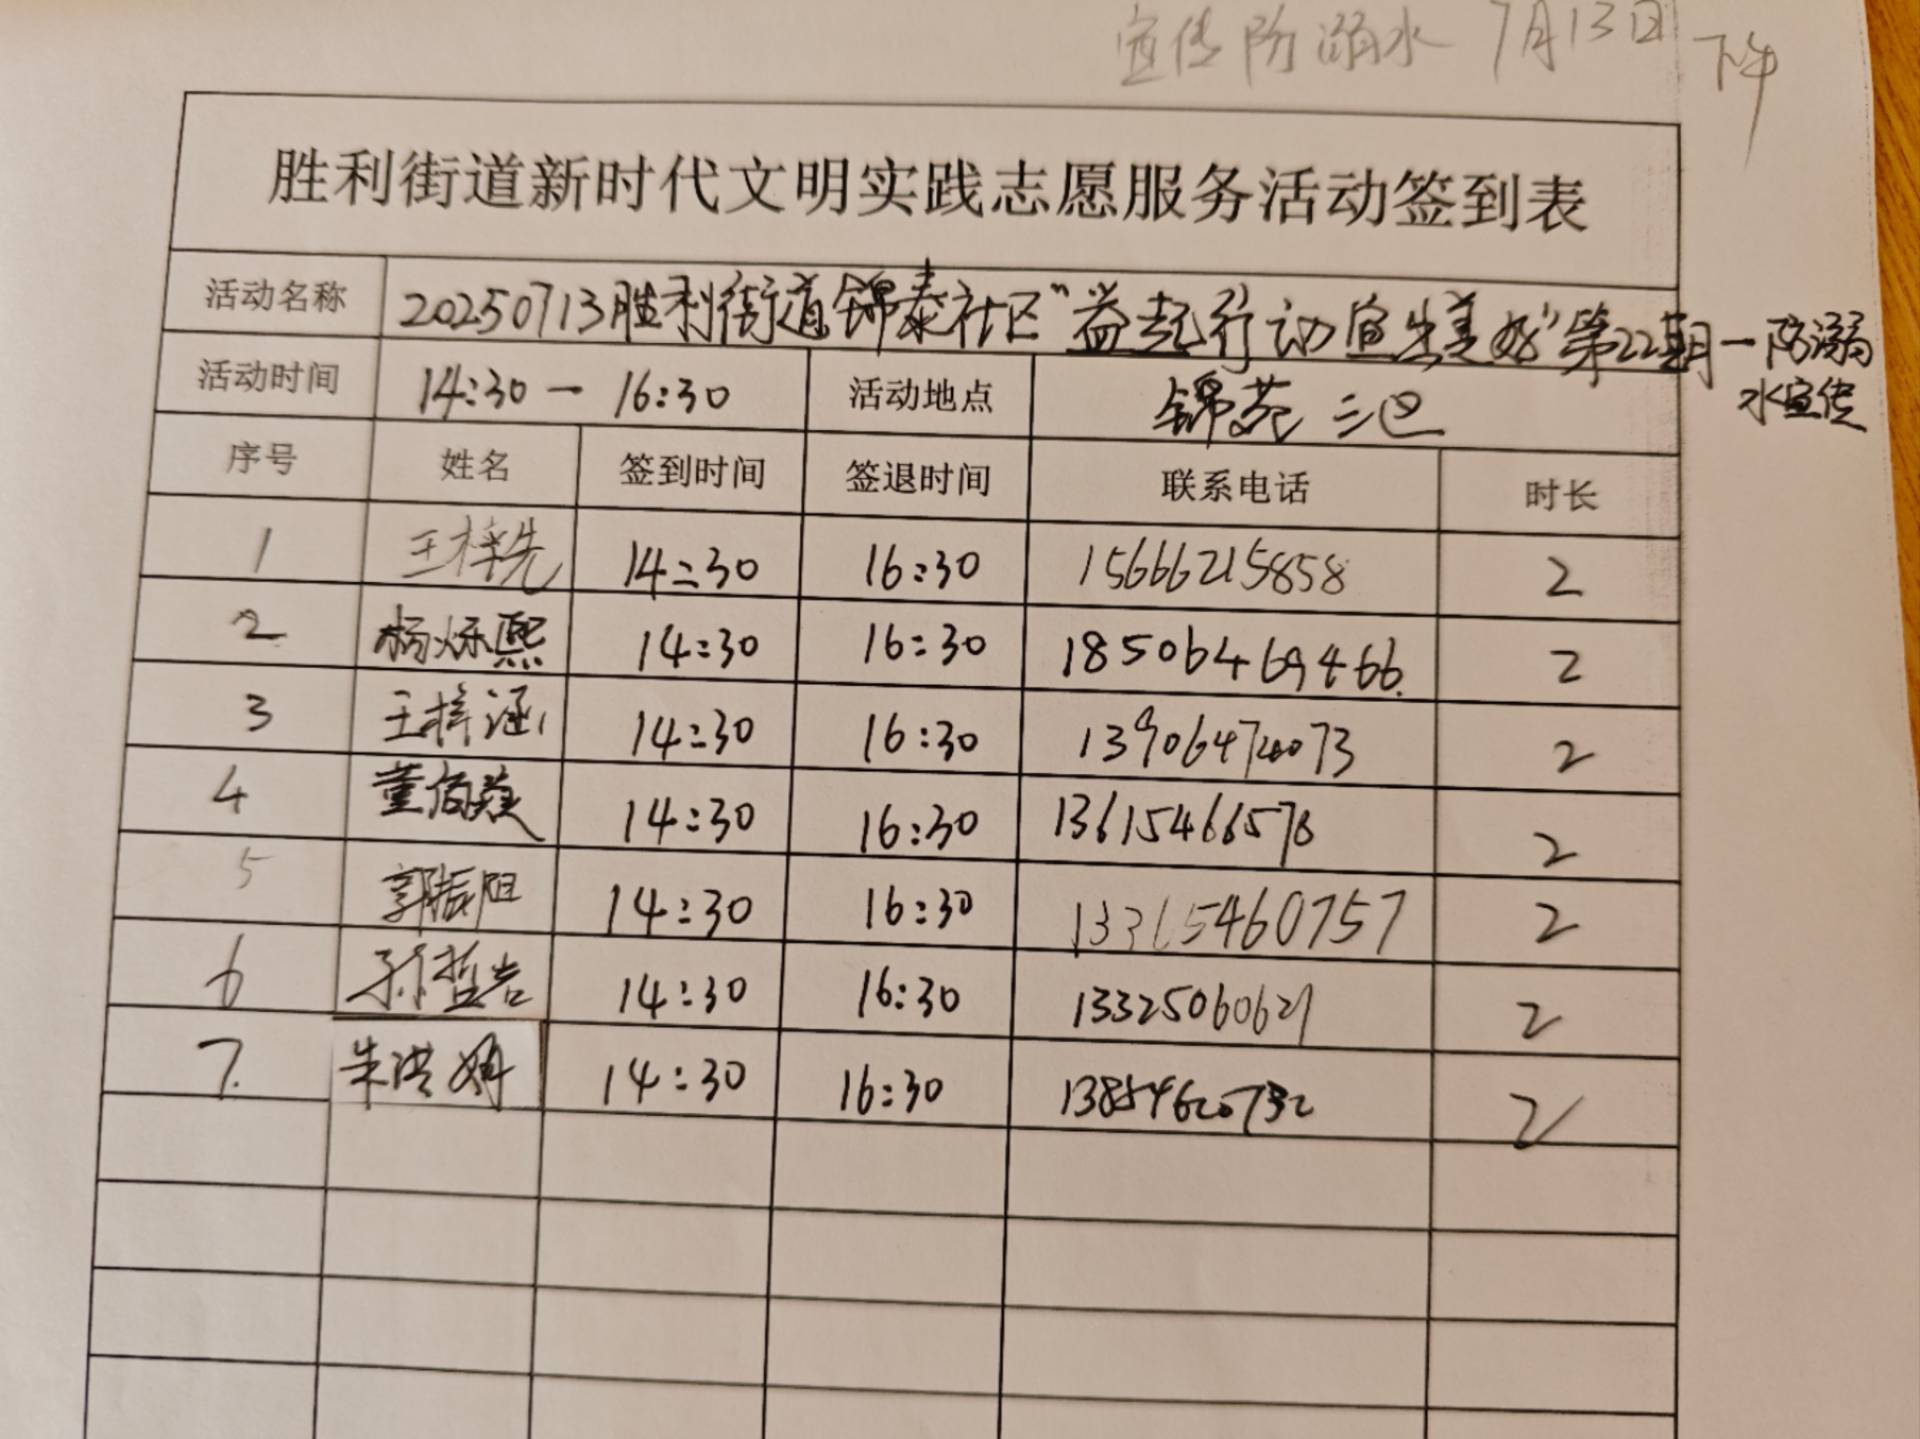 宣传防溺水 7月13日 下午
胜利街道新时代文明实践志愿服务活动签到表
活动名称 20250713胜利街道锦泰社区"益起行动宜生美好"第22期-防溺水宣传
活动时间 14:30-16:30 活动地点 锦苑二区
序号 姓名 签到时间 签退时间 联系电话 时长
1 王梓先 14:30 16:30 15666215858 2
2 杨烁熙 14:30 16:30 18506469466 2
3 王梓涵 14:30 16:30 2
4 董 14:30 16:30 13615466578 2
5 郭振 14:30 16:30 13365460757 2
6 孙哲 14:30 16:30 13325060621 2
7. 朱洪娟 14:30 16:30 13854620732 2